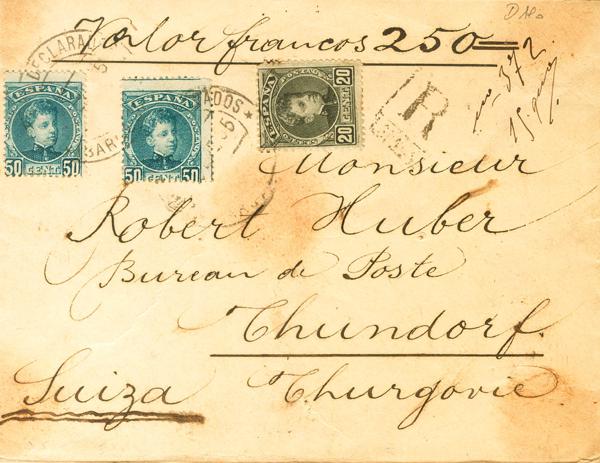 Valor francos 250=
DECLARADO
BAR
ESPAÑA
50 CENT 50
ESPAÑA
50 CENT 50
ADOS
ESPAÑA
POSTAL
20 CENT 20
R
no 372
15 gr
Monsieur
Robert Huber
Bureau de Poste
Thundorf.
Suiza Thurgovie